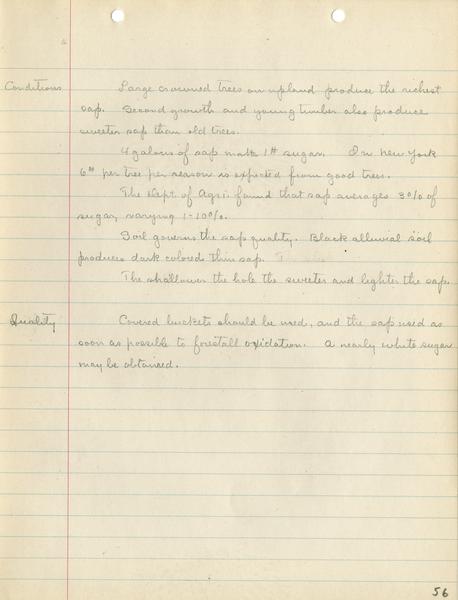 Conditions Large crowned trees on upland produce the richest
sap. Second growth and young timber also produce
sweeter sap than old trees.
4 galons of sap make 1# sugar. In New York
6# per tree per season is expected from good trees.
The Dept. of Agri. found that sap averages 3% of
sugar, varying 1-10%.
Soil governs the sap quality. Black alluvial soil
produces dark colored thin sap.
The shallower the hole the sweeter and lighter the sap.
Quality Covered buckets should be used, and the sap used as
soon as possible to forestall oxidation. A nearly white sugar
may be obtained.
56